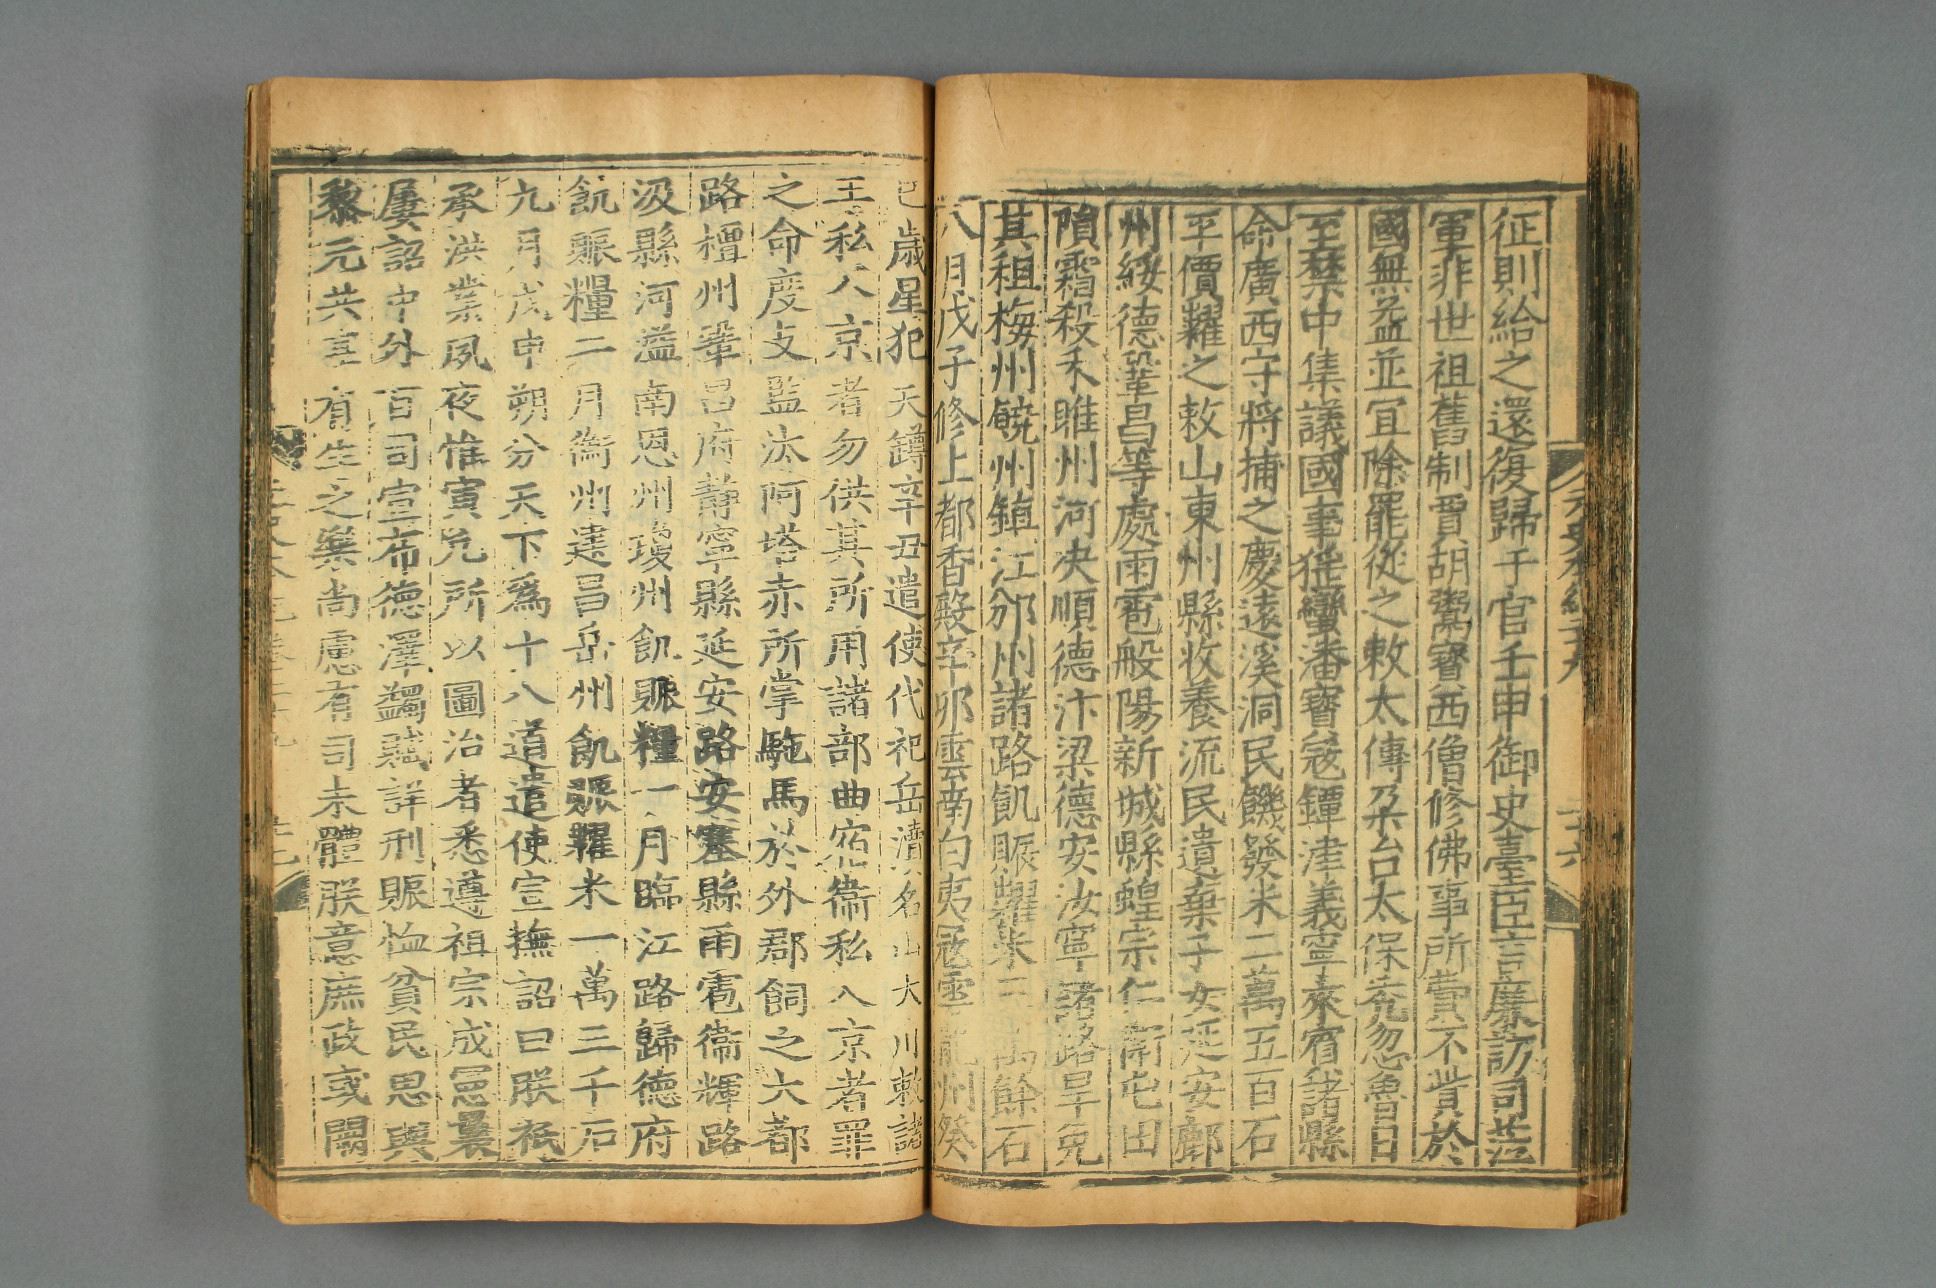 征則給之還復歸于官壬申御史臺臣言廉訪司蒞
軍非世祖舊制賈胡鬻寳西僧修佛事所費不貲於
國無益並宜除罷從之敕太傅朶台太保禿忽魯日
至禁中集議國事猺蠻潘寳寇鐔津義寧來賔諸縣
命廣西守將捕之慶遠溪洞民饑發米二萬五百石
平價糶之敕山東州縣收養流民遺棄子女延安鄜
州綏德鞏昌等處雨雹般陽新城縣蝗宗仁衛屯田
隕霜殺禾睢州河决順德汴梁德安汝寧諸路旱免
其租梅州饒州鎮江邠州諸路飢賑糶米三萬餘石
八月戊子修上都香殿辛卯雲南白夷寇雲龍州癸
巳歲星犯天鐏辛丑遣使代祀岳瀆名山大川敕諸
王私入京者勿供其所用諸部曲宿衛私入京者罪
之命度支監汰阿塔赤所掌駞馬於外郡飼之大都
路檀州鞏昌府靜寧縣延安路安塞縣雨雹衛輝路
汲縣河溢南恩州瓊州飢賑糧一月臨江路歸德府
飢賑糧二月衡州建昌岳州飢賑糶米一萬三千石
九月戊申朔分天下爲十八道遣使宣撫詔曰朕祇
承洪業夙夜惟寅凡所以圖治者悉遵祖宗成憲曩
屢詔中外百司宣布德澤蠲賦詳刑賑恤貧民思與
黎元共享有生之樂尚慮有司未體朕意庶政或闕
元史本紀二十九
二十六